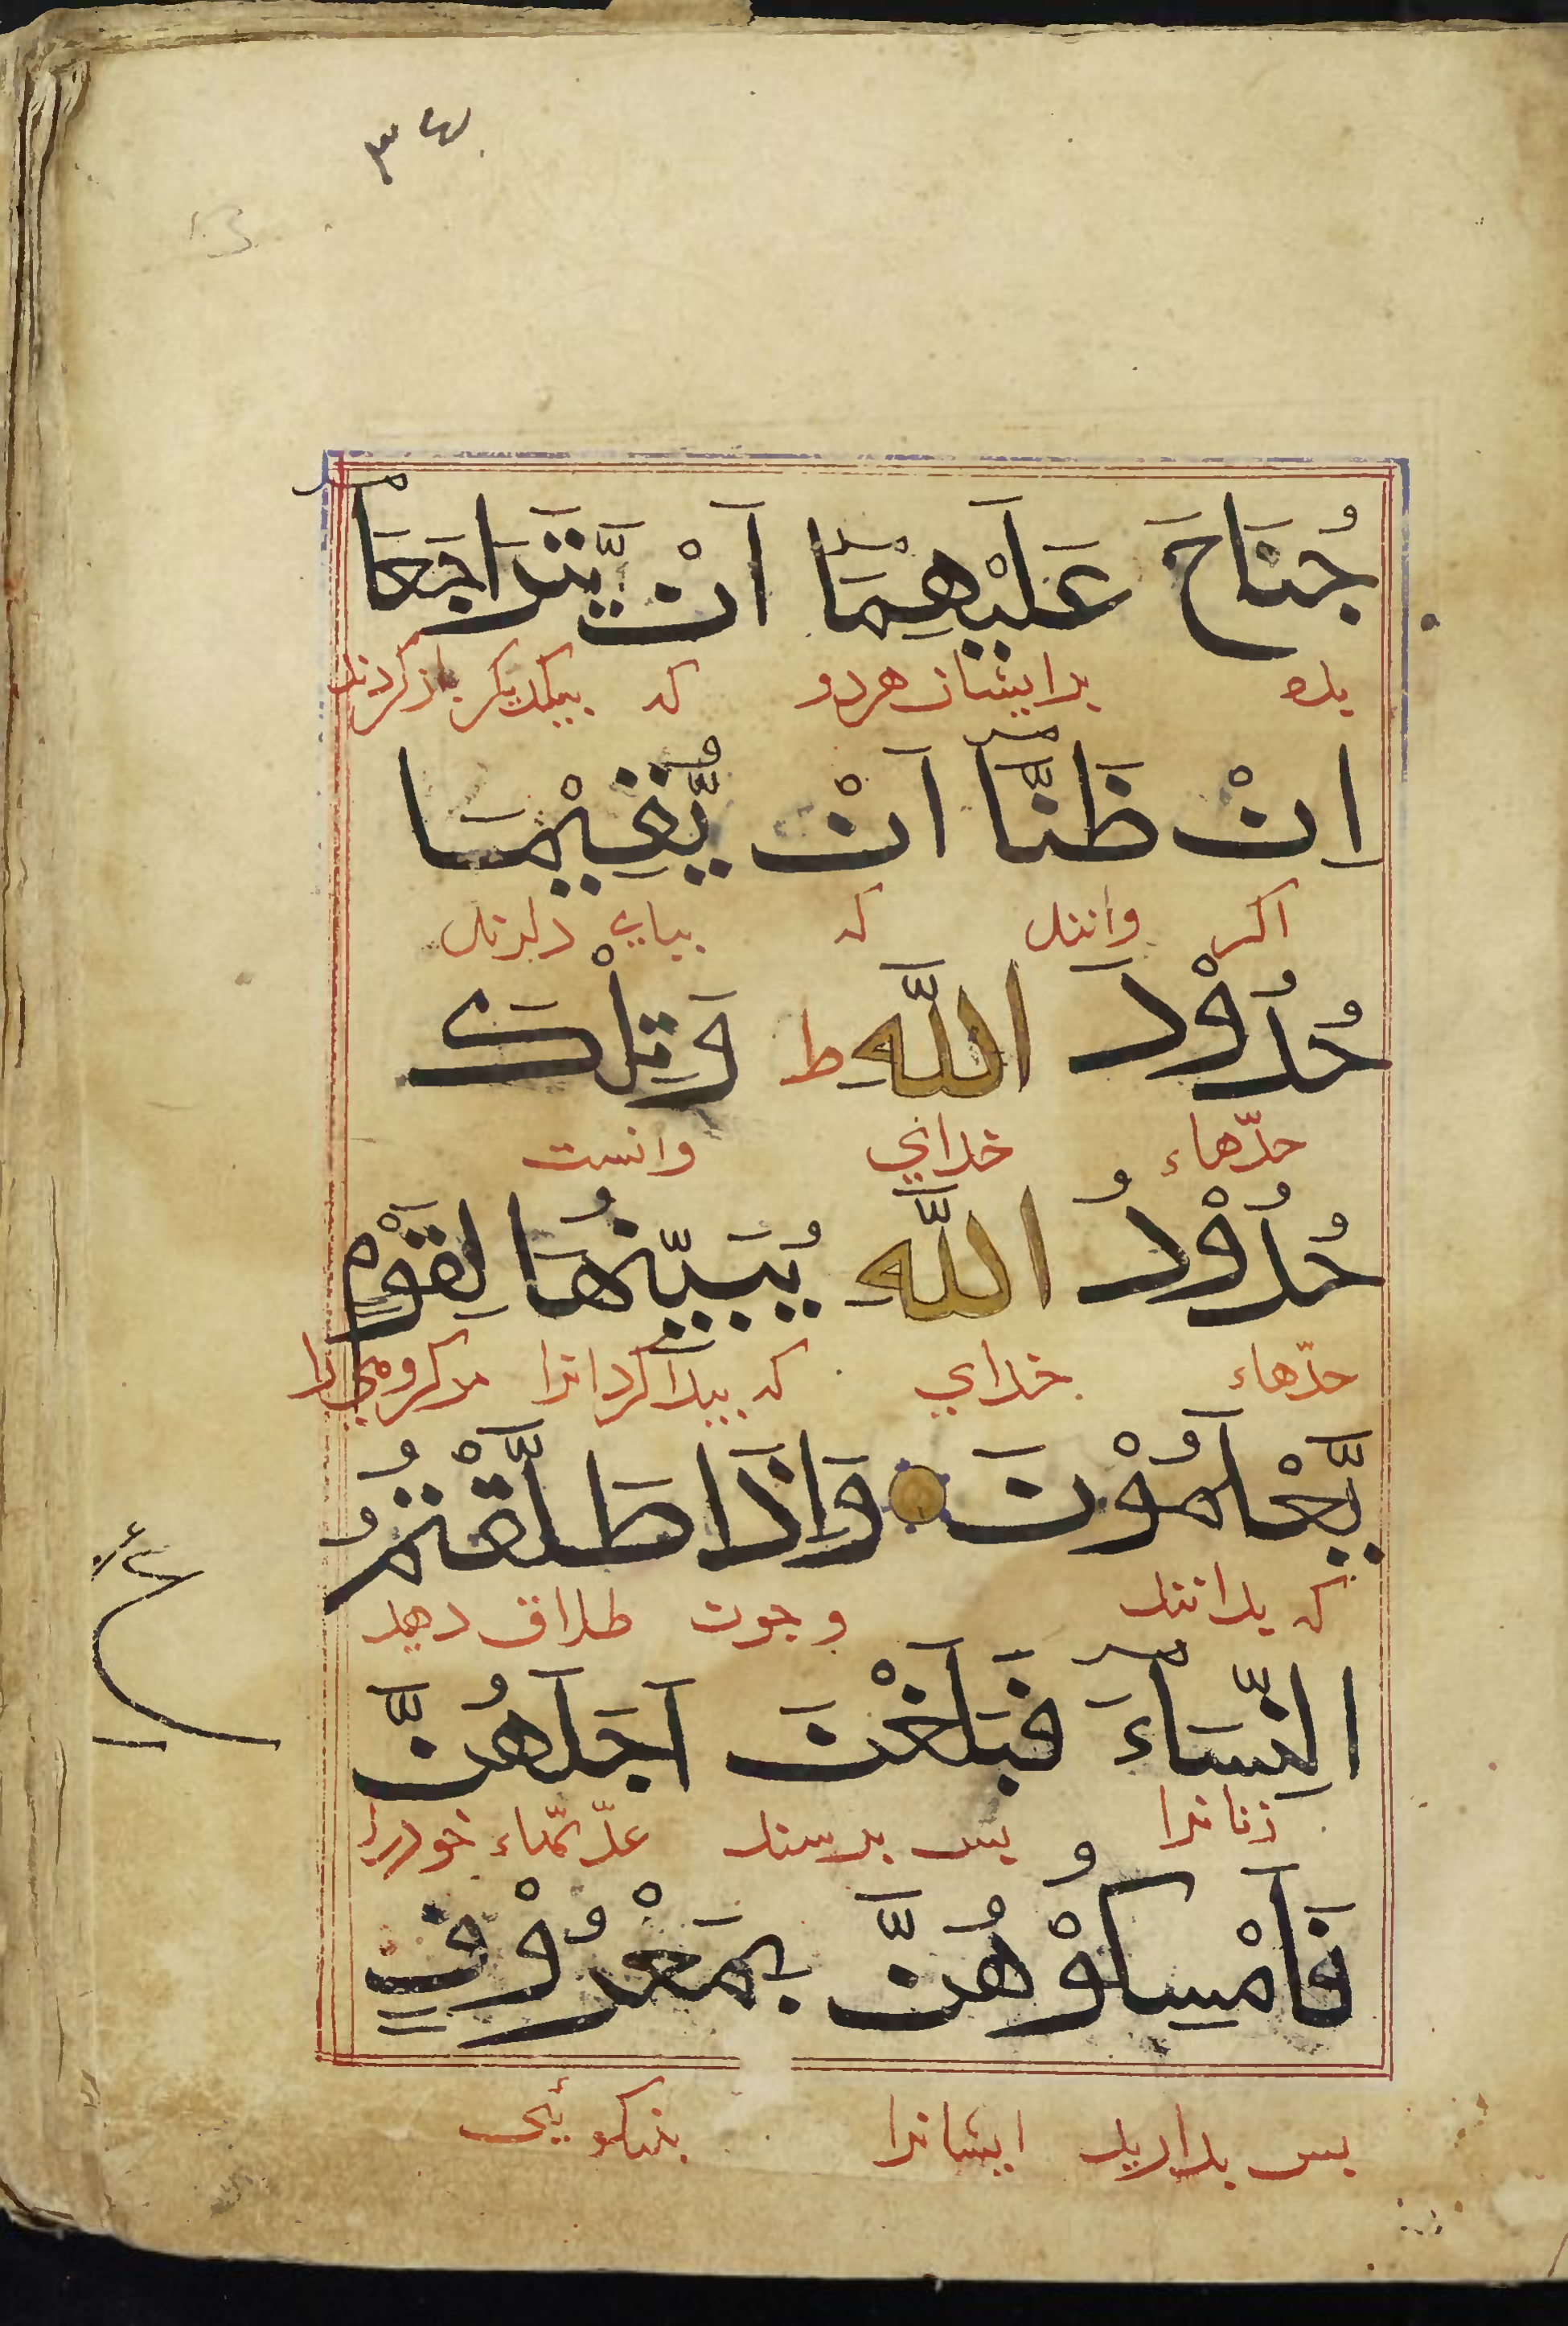 جُنَاحَ عَلَيْهِمَآ اَنْ يَّتَرَاجَعَآ
بر ايشان هر دو كه بيكديكر باز كردند
اِنْ ظَنَّآ اَنْ يُّقِيْمَا
اكر دانند كه بپاي دارند
حُدُوْدَ اللَّهِ ط وَتِلْكَ
حدّهاء خداي وانست
حُدُوْدُ اللَّهِ يُبَيِّنُهَا لِقَوْمٍ
حدّهاء خداي كه پيدا كرد انرا مر كروهي را
يَّعْلَمُوْنَ وَاِذَا طَلَّقْتُمُ
كه بدانند و چون طلاق دهيد
النِّسَآءَ فَبَلَغْنَ اَجَلَهُنَّ
زنانرا پس برسند عدّتهاء خود را
فَاَمْسِكُوْهُنَّ بِمَعْرُوْفٍ
پس بداريد ايشانرا بنيكوئى
ع